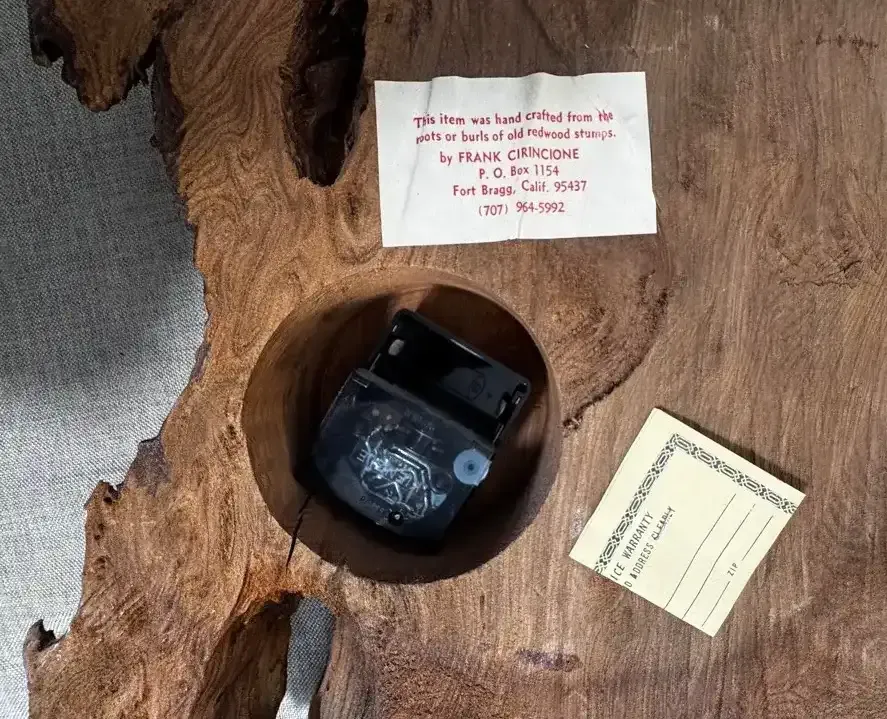 This item was hand crafted from the
roots or burls of old redwood stumps.
by FRANK CIRINCIONE
P. O. Box 1154
Fort Bragg, Calif. 95437
(707) 964-5992
ICE WARRANTY
D ADDRESS CLEARLY
ZIP